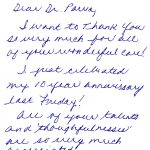 Dear Dr. Parva,
I want to thank you
so very much for all
of your wonderful care!
I just celebrated
my 10 year anniversary
last Friday!
All of your talents
and thoughtfulnesses
are so very much